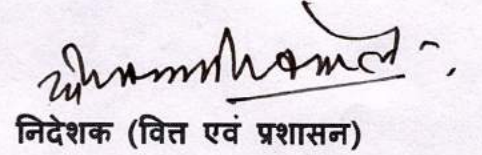 निदेशक (वित्त एवं प्रशासन)